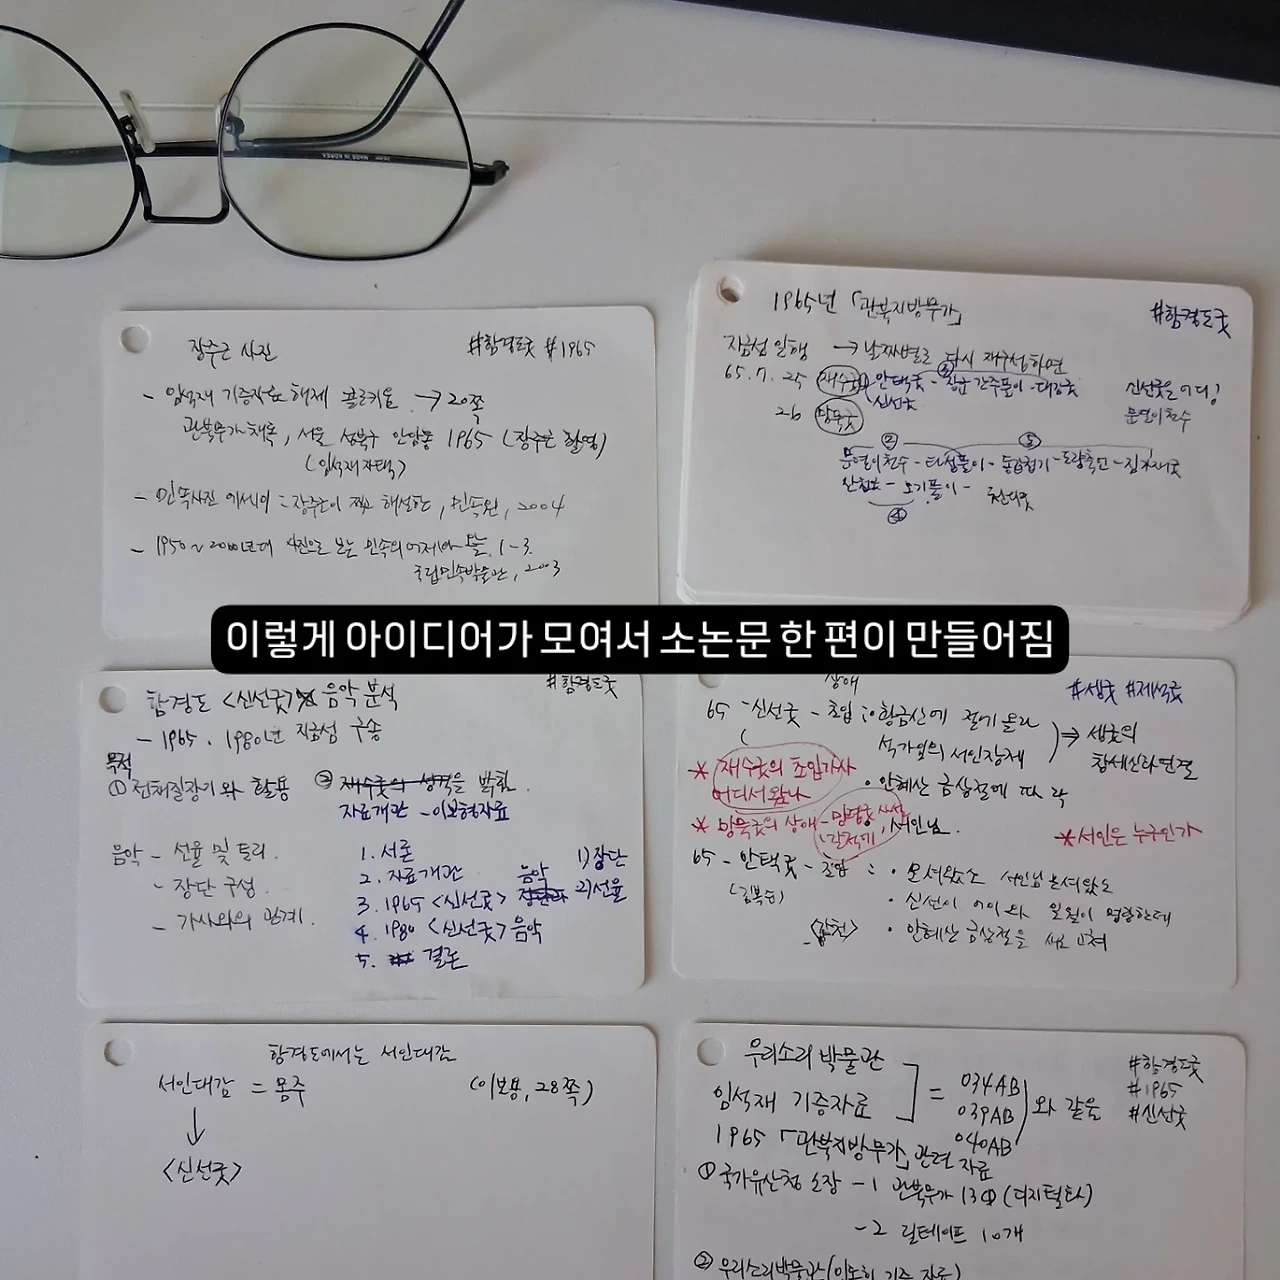 MADE IN KOREA
장주근 사진 #함경도굿 #1965
- 임석재 기증자료 해제 블로키움 → 20쪽
관북무가 채록, 서울 성북구 안암동 1965 (장주근 촬영)
(임석재 자택)
- 민속사진 에세이 : 장주근이 찍고 해설한, 민속원, 2004
- 1950~2000년대 사진으로 보는 민속의 어제와 오늘. 1-3.
국립민속박물관, 2003
1965년 「관북지방무가」 #함경도굿
지금섬 일행 → 날짜별로 다시 재구성하면
65. 7. 25 재수굿 ① 안택굿 - ③ 간주풀이 - 대감굿
신선굿
신선굿은 어디?
문열이천수
26 망묵굿
② ⑤
문열이천수 - 타성풀이 - 동갑접기 - 도랑축원 - 짐가재굿
산천도 - 오기풀이 -
④
이렇게 아이디어가 모여서 소논문 한 편이 만들어짐
함경도 <신선굿> 음악 분석 #함경도굿
- 1965, 1980년 지금섬 구송
목적
① 전채질장기와 활용 ② 재수굿의 성격을 밝힘.
자료개관 - 이보형자료
음악 - 선율 및 토리.
- 장단 구성.
- 가사와의 관계.
1. 서론
2. 자료개관
3. 1965 <신선굿> 음악 1) 장단 2) 선율
4. 1980 <신선굿> 음악
5. 결론
상애 #세굿 #제석굿
65 - 신선굿 - 초입 : • 황금산에 절에 올라
석가열의 서인장제
⇒ 세굿의 창세신화연결
* 재수굿의 초입가사 어디서 왔나
• 안혜산 금상절에 따라
* 망묵굿의 상애 - , 서인님.
* 서인은 누구인가
65 - 안택굿 - 초입 : • 모셔왔소 서인님 모셔왔소
(김복순) • 신선이 어이와 일월이 영랑한데
• 안혜산 금상절을
함경도에서는 서인대감
서인대감 = 몽주 (이보용, 28쪽)
↓
<신선굿>
우리소리 박물관
임석재 기증자료 ] = 034AB 039AB 040AB ) 와 같음
#함경도굿
#1965
#신선굿
1965 「관북지방무가」 관련 자료
① 국가유산청 소장 - 1 관북무가 13 (디지털화)
- 2 릴테이프 10개
② 우리소리박물관